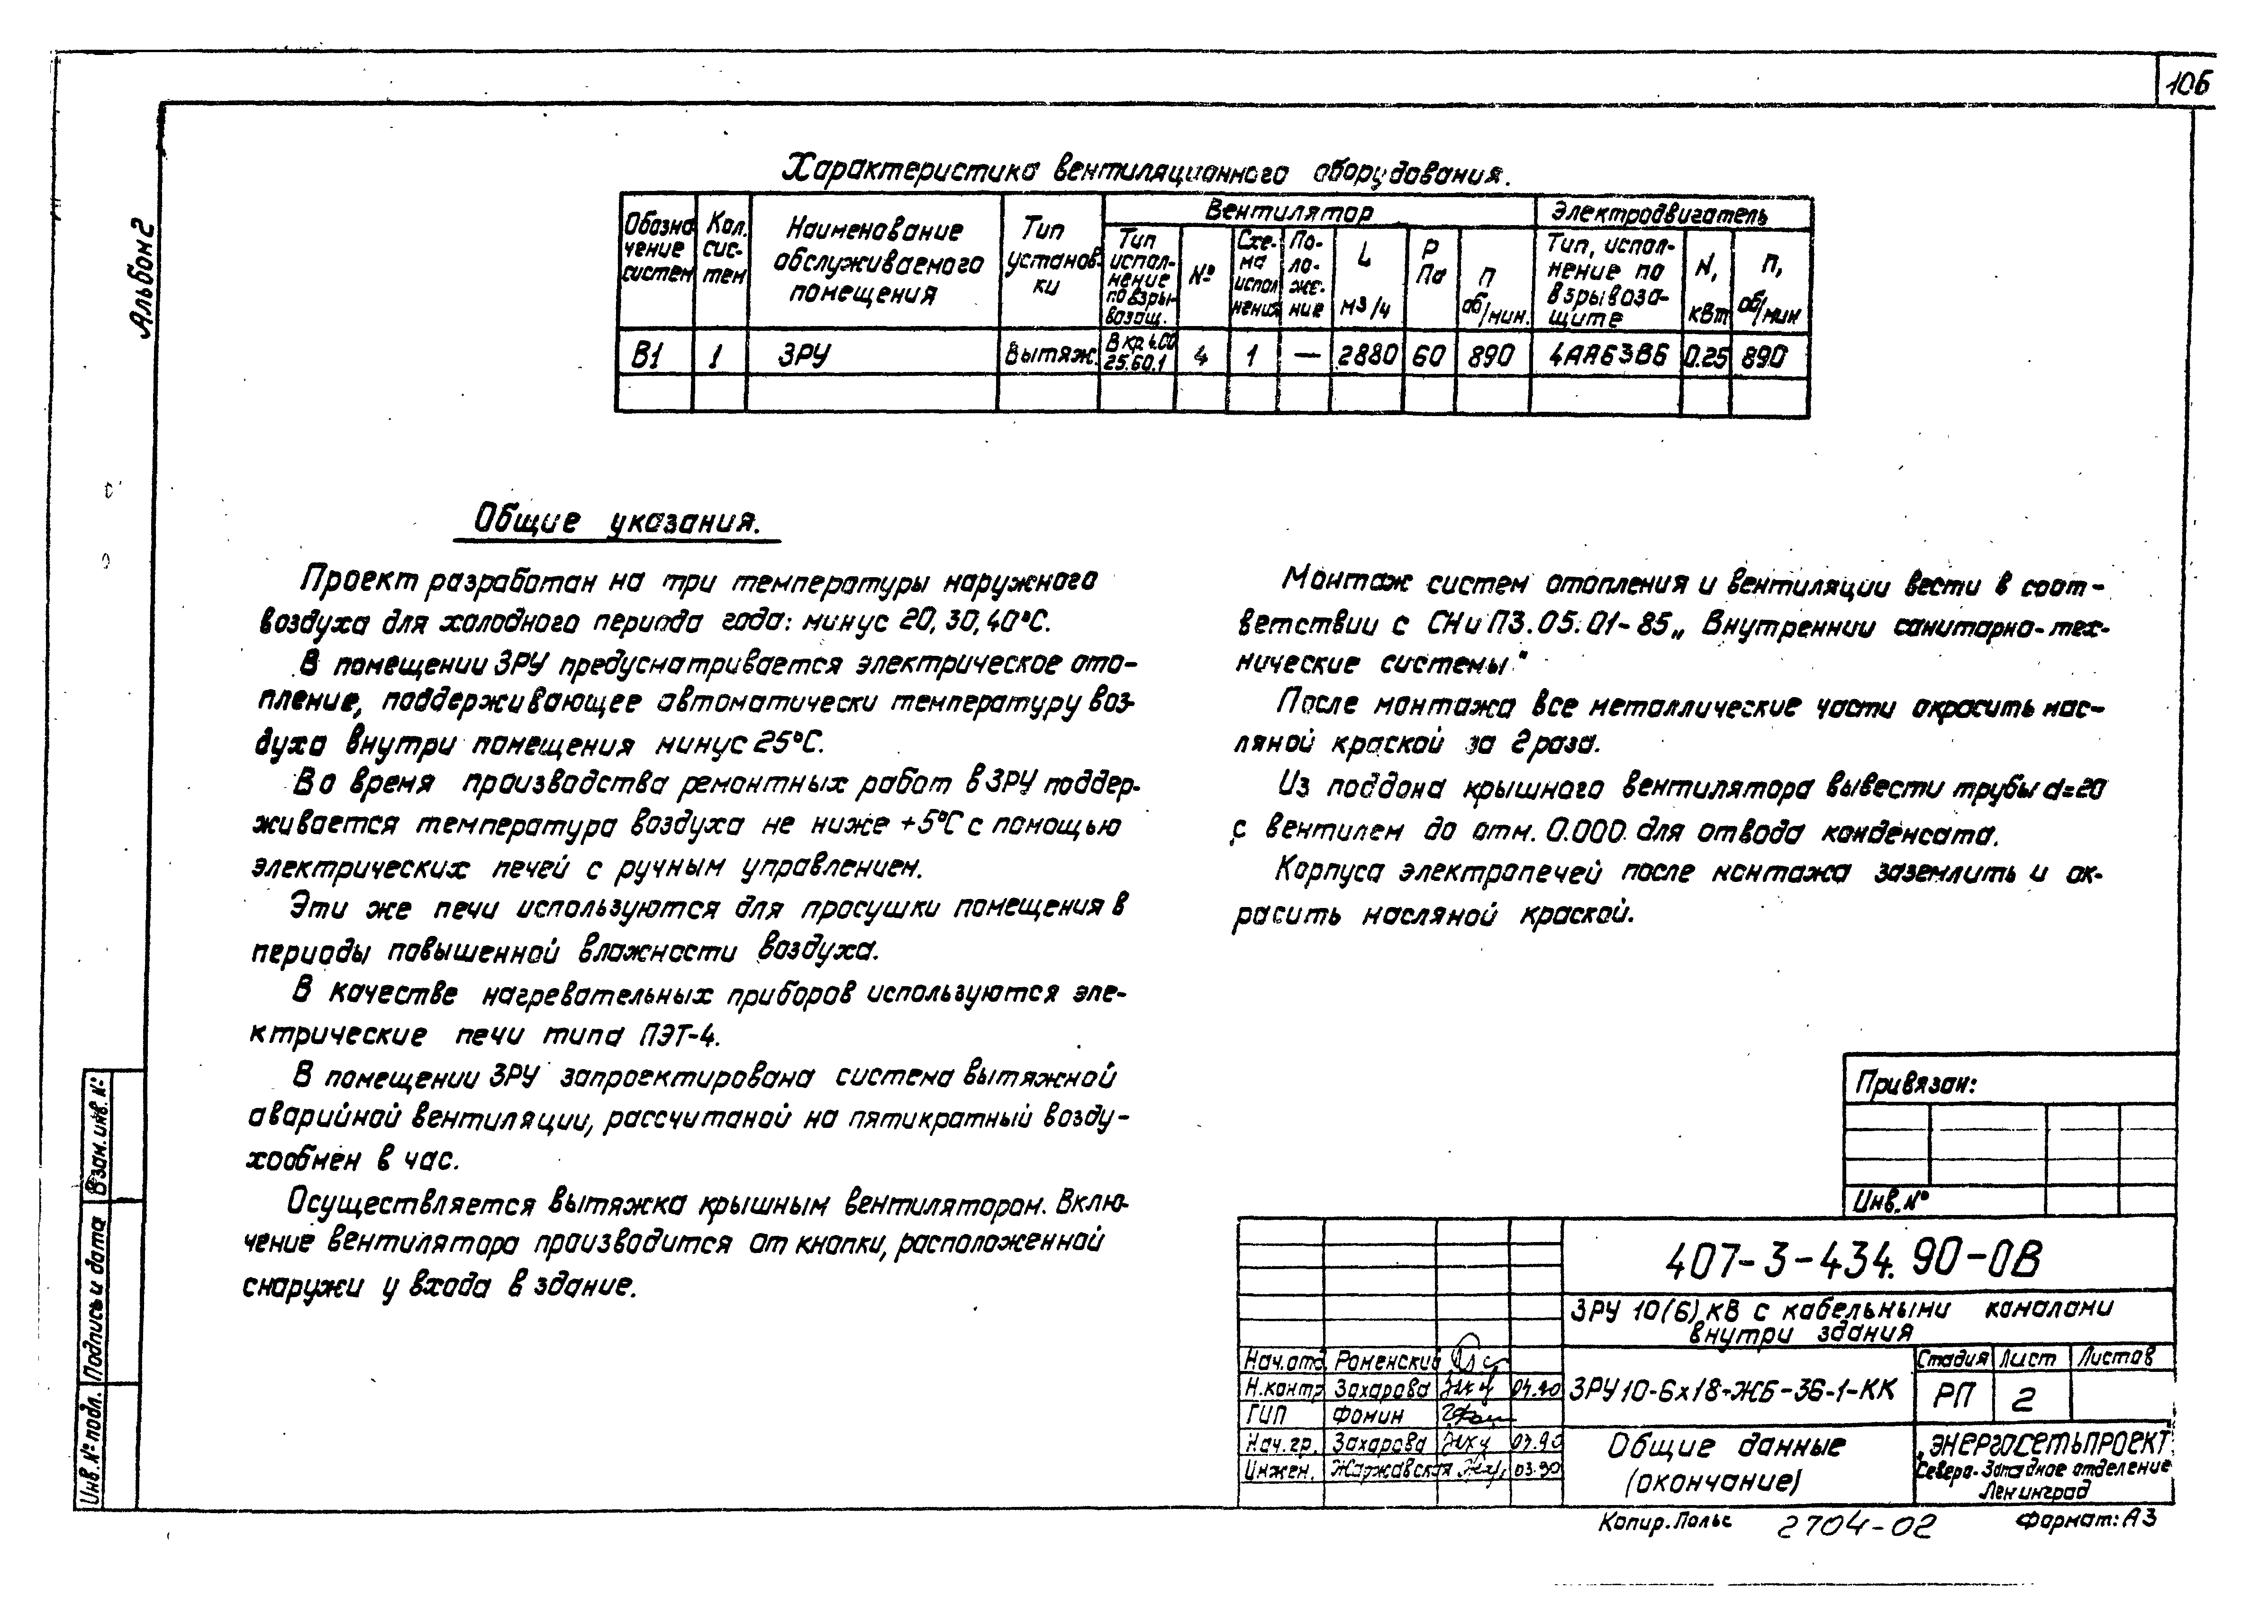 106
Альбом 2
Характеристика вентиляционного оборудования.
Обозна-
чение
систем
Кол.
сис-
тем
Наименование
обслуживаемого
помещения
Тип
установ-
ки
Вентилятор
Тип
испол-
нение
по взры-
возащ.
№
Схе-
ма
испол
нения
По-
ло-
же-
ние
L
м3/ч
P
Па
п
об/мин.
Электродвигатель
Тип, испол-
нение по
взрывоза-
щите
N,
кВт
п,
об/мин
В1 1 ЗРУ Вытяж. В кр 4.00 25.60.1 4 1 — 2880 60 890 4АА63В6 0.25 890
Общие указания.
Проект разработан на три температуры наружного
воздуха для холодного периода года: минус 20, 30, 40°С.
В помещении ЗРУ предусматривается электрическое ото-
пление, поддерживающее автоматически температуру воз-
духа внутри помещения минус 25°С.
Во время производства ремонтных работ в ЗРУ поддер-
живается температура воздуха не ниже +5°С с помощью
электрических печей с ручным управлением.
Эти же печи используются для просушки помещения в
периоды повышенной влажности воздуха.
В качестве нагревательных приборов используются эле-
ктрические печи типа ПЭТ-4.
В помещении ЗРУ запроектирована система вытяжной
аварийной вентиляции, рассчитаной на пятикратный возду-
хообмен в час.
Осуществляется вытяжка крышным вентилятором. Вклю-
чение вентилятора производится от кнопки, расположенной
снаружи у входа в здание.
Монтаж систем отопления и вентиляции вести в соот-
ветствии с СНиП3.05.01-85 „Внутреннии санитарно-тех-
нические системы"
После монтажа все металлические части окрасить мас-
ляной краской за 2 раза.
Из поддона крышного вентилятора вывести трубы d=20
с вентилем до отм. 0.000. для отвода конденсата.
Корпуса электропечей после монтажа заземлить и ок-
расить масляной краской.
Привязан:
Инв. №
407-3-434.90-ОВ
ЗРУ 10(6) КВ с кабельными каналами
внутри здания
Нач.отд. Роменский
Н.контр Захарова 04.90
ГИП Фомин
Нач.гр. Захарова 03.90
Инжен. Жаржавская 03.90
ЗРУ10-6х18-ЖБ-36-1-КК
Стадия Лист Листов
РП 2
Общие данные
(окончание)
„ЭНЕРГОСЕТЬПРОЕКТ"
Северо-Западное отделение
Ленинград
Копир. Польс 2704-02 Формат: А3
Взам. инв. №
Подпись и дата
Инв. № подл.